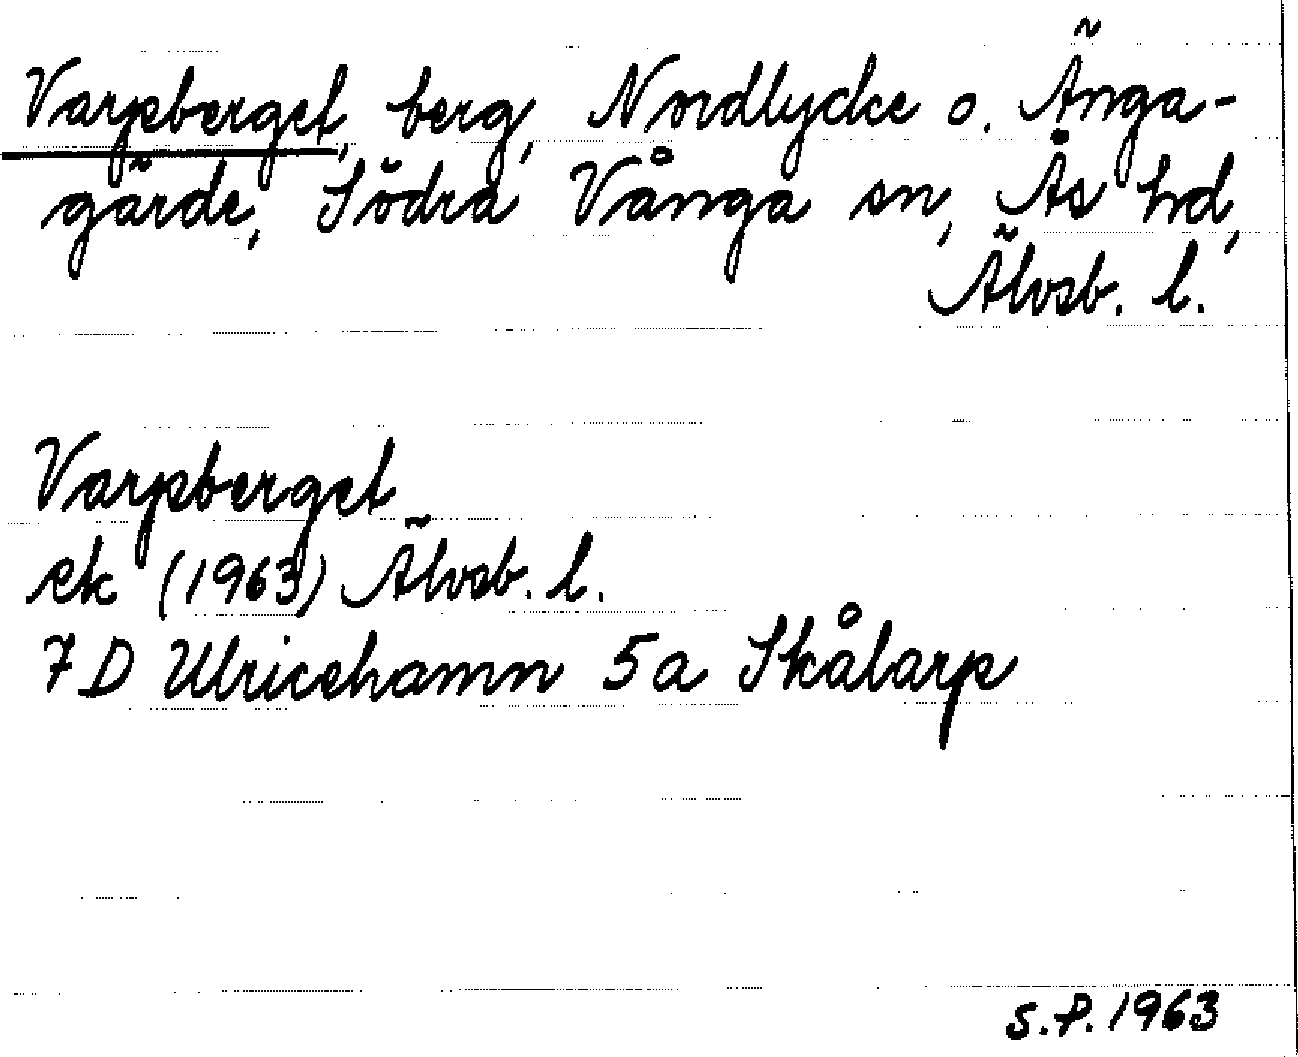 Varpeberget, berg, Nordlycke o. Änga-
gärde, Södra Vånga sn, Ås hd,
Älvsb. l.
Varpeberget
ek (1963) Älvsb. l.
7D Ulricehamn 5a Skålarp
S.P. 1963